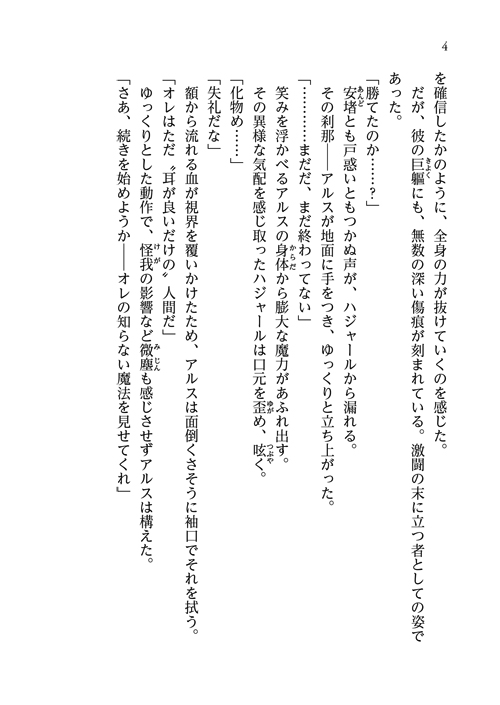 4
を確信したかのように、全身の力が抜けていくのを感じた。
だが、彼の巨軀にも、無数の深い傷痕が刻まれている。激闘の末に立つ者としての姿で
あった。
「勝てたのか……？」
安堵とも戸惑いともつかぬ声が、ハジャールから漏れる。
その刹那――アルスが地面に手をつき、ゆっくりと立ち上がった。
「…………まだだ、まだ終わってない」
笑みを浮かべるアルスの身体から膨大な魔力があふれ出す。
その異様な気配を感じ取ったハジャールは口元を歪め、呟く。
「化物め……」
「失礼だな」
額から流れる血が視界を覆いかけたため、アルスは面倒くさそうに袖口でそれを拭う。
「オレはただ〝耳が良いだけの〟人間だ」
ゆっくりとした動作で、怪我の影響など微塵も感じさせずアルスは構えた。
「さあ、続きを始めようか――オレの知らない魔法を見せてくれ」